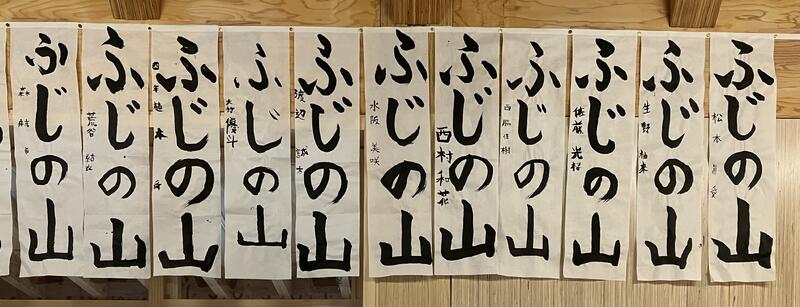 ふじの山
松本 愛
ふじの山
生野
ふじの山
佐藤 光
ふじの山
樹
ふじの山
西村 和花
ふじの山
水阪 美咲
ふじの山
渡辺
ふじの山
優斗
ふじの山
ふじの山
荒谷 結衣
ふじの山
森